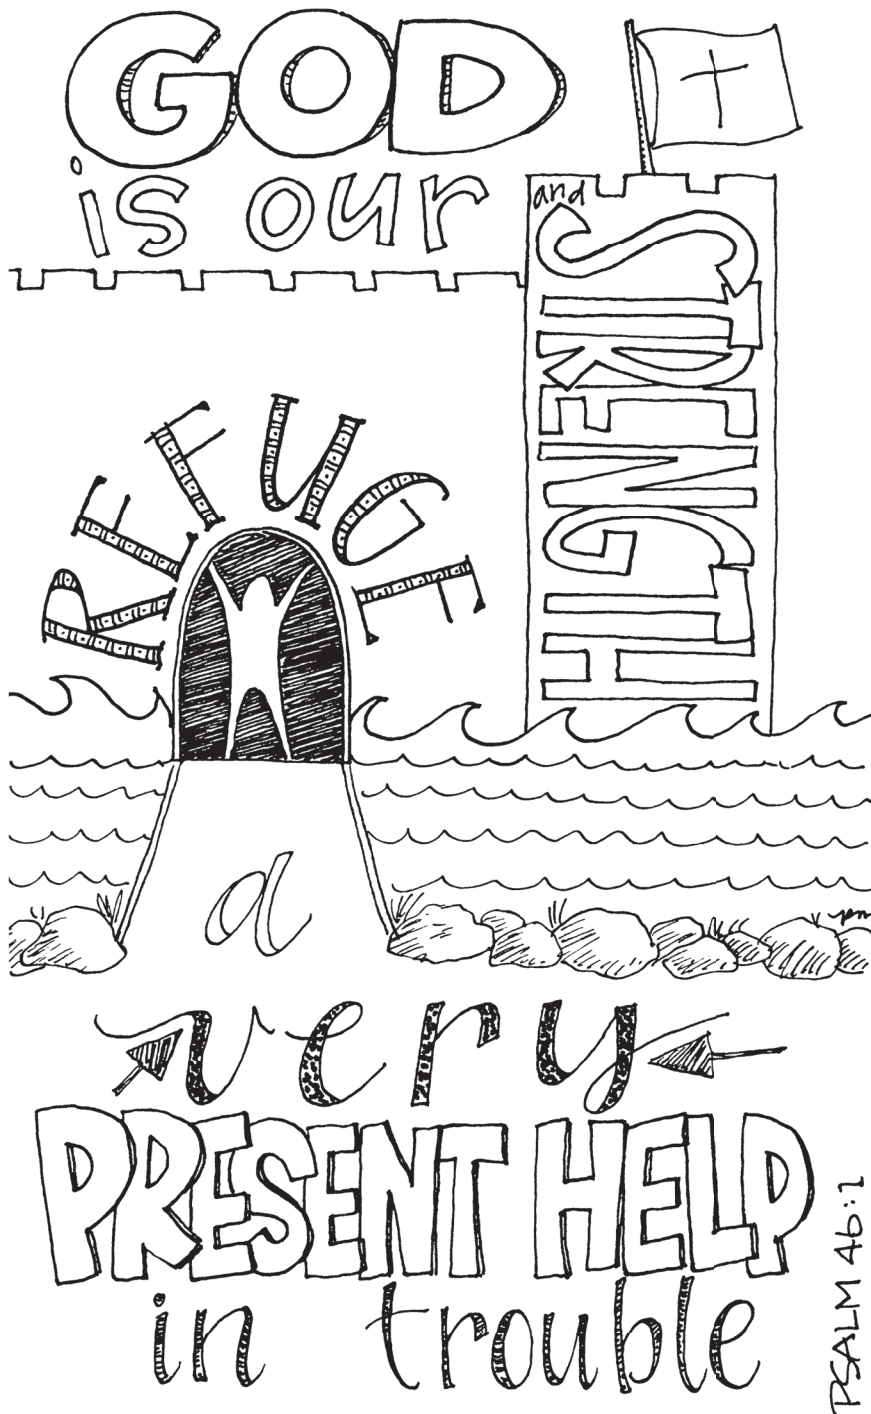 GOD
is our
REFUGE
and
STRENGTH
a
very
PRESENT HELP
in trouble
PSALM 46:1